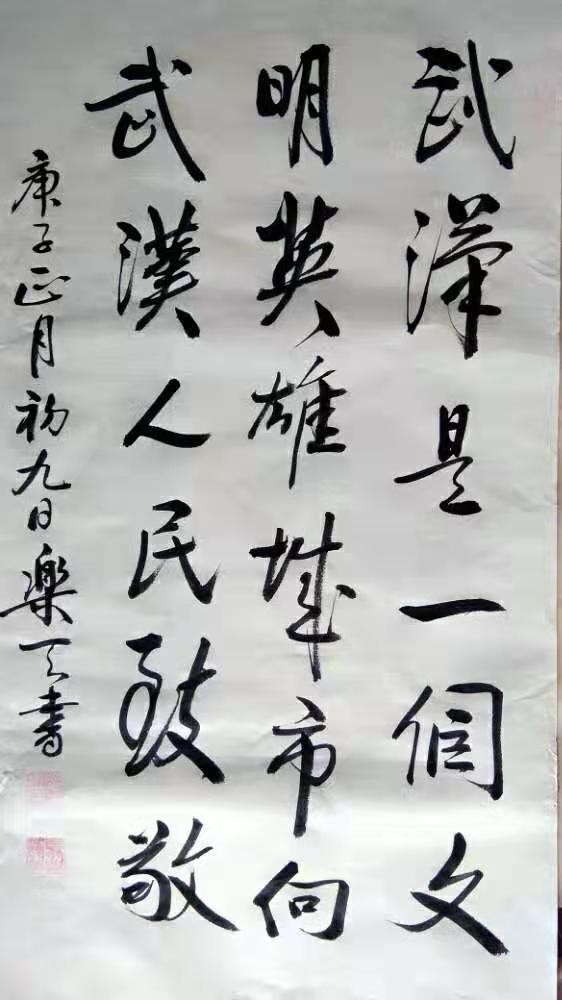 武漢是一個文
明英雄城市向
武漢人民致敬
庚子正月初九日樂天書